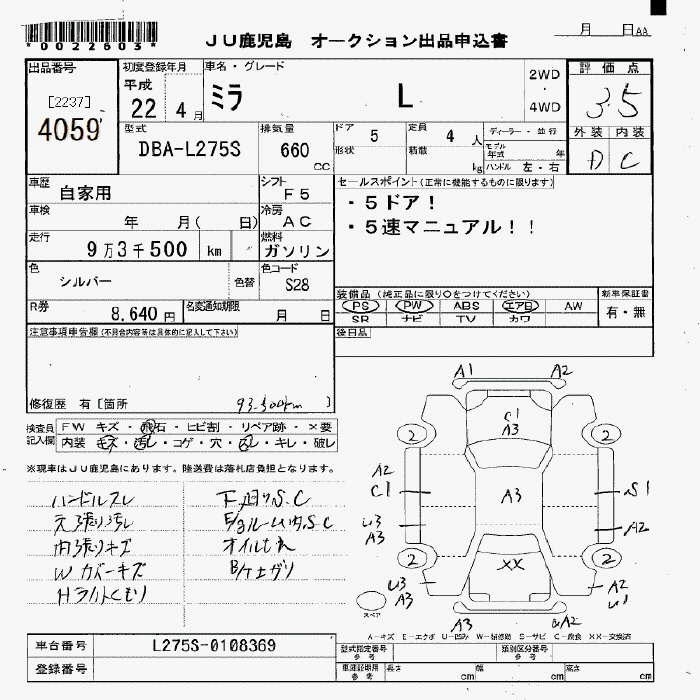 *0022603*
JU鹿児島 オークション出品申込書
月 日 AA
出品番号
[2237]
4059
初度登録年月
平成
22 4 月
車名・グレード
ミラ L
2WD
・
4WD
評価点
3.5
外装 内装
D C
型式
DBA-L275S
排気量
660
CC
ドア
5
定員
4 人
形状
積載
kg
ディーラー・並行
モデル
年式 年
ハンドル 左・右
車歴
自家用
シフト
F5
車検
年 月( 日)
冷房
AC
走行
9万3千500 km
燃料
ガソリン
色
シルバー
色替
色コード
S28
R券
8,640 円
名変通知期限
月 日
セールスポイント(正常に機能するものに限ります)
・5ドア!
・5速マニュアル!!
装備品 (純正品に限り○をつけてください)
PS PW ABS エアB AW
SR ナビ TV カワ
新車保証書
有・無
後日品
注意事項申告欄(不具合内容等は具体的に記入して下さい)
修復歴 有[箇所 93.500km ]
検査員
記入欄
FW キズ・飛石・ヒビ割・リペア跡・×要
内装 キズ・汚レ・コゲ・穴・凹レ・キレ・破レ
※現車はJU鹿児島にあります。陸送費は落札店負担となります。
ハンドルスレ
天張り汚レ
内張りキズ
Wカバーキズ
Hライトくもり
下廻りS.C
E/gルーム内S.C
オイルもれ
A1 A2
C1
A3
2 2
A2
C1
A3
S1
U3
A3
A2
2 2
XX
U3
A3
A2
U1
スペア
A3
A2
A-キズ E-エクボ U-凹み W-補修跡 S-サビ C-腐食 XX-交換済
車台番号
L275S-0108369
登録番号
型式指定番号
参考
類別区分番号
参考
車庫証明用
参考
長さ cm
幅 cm
高さ cm